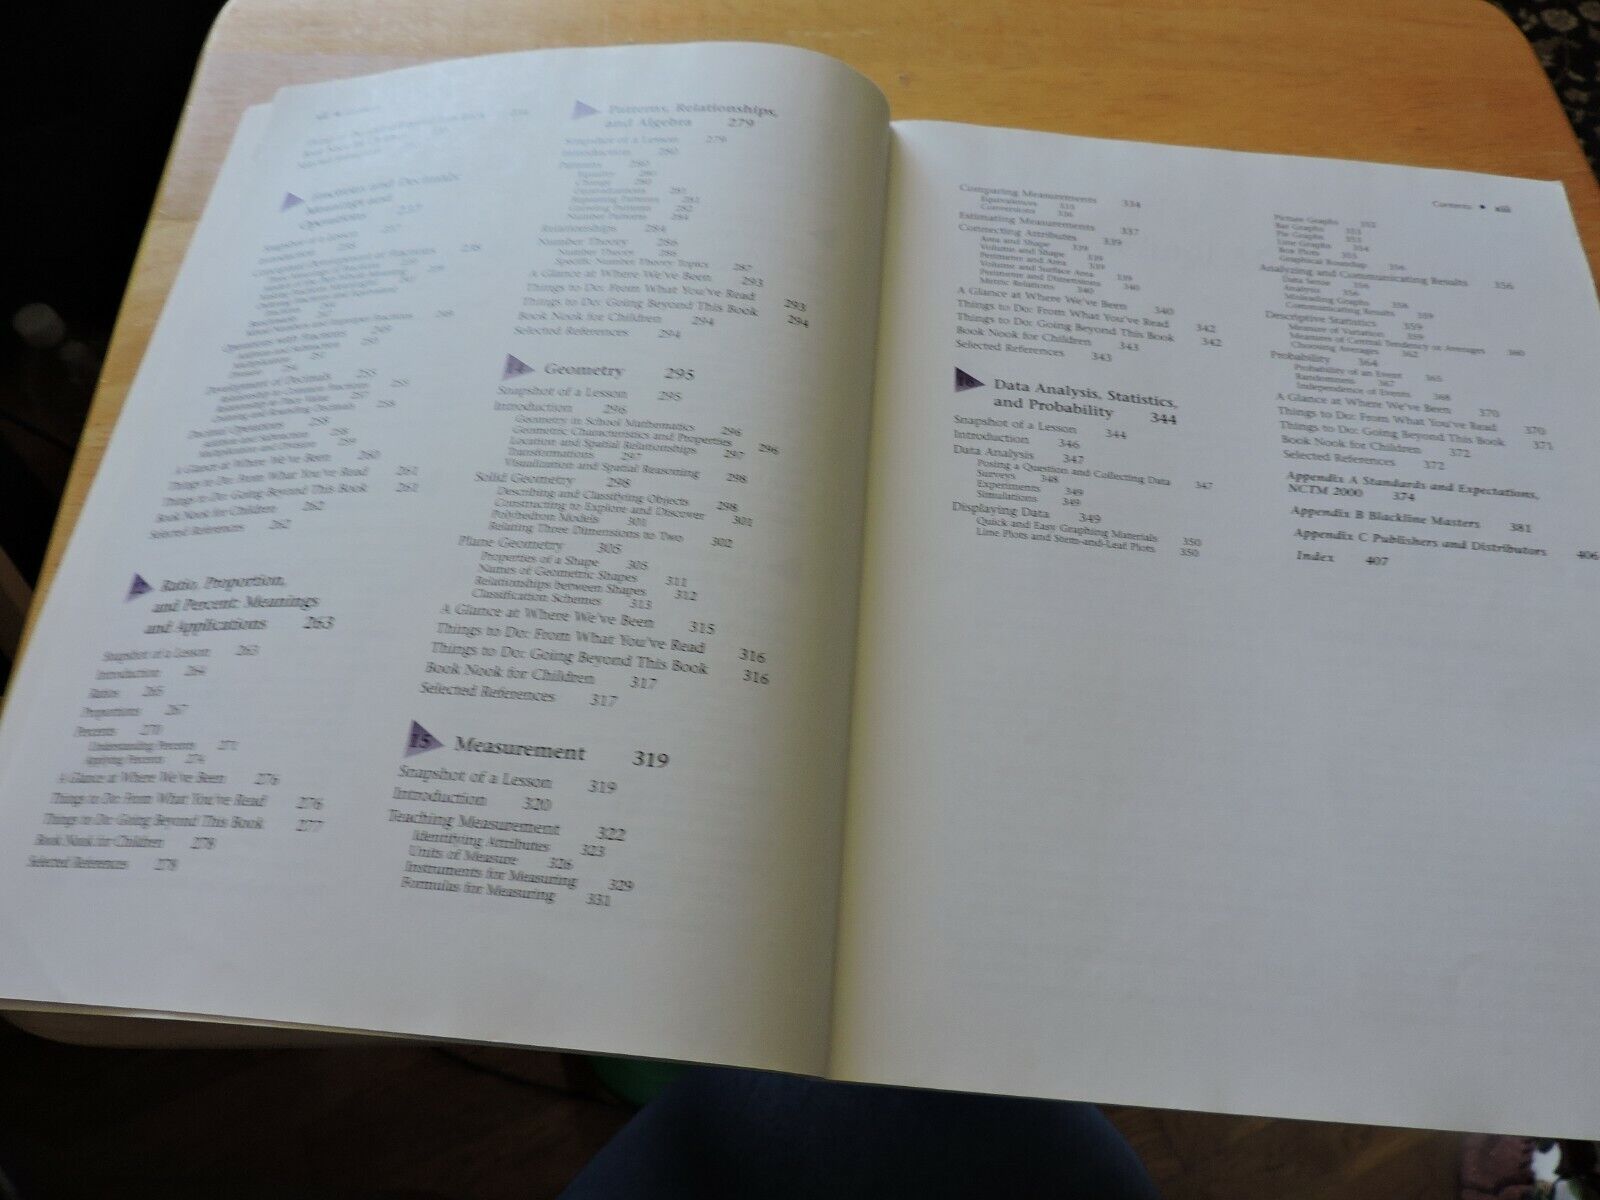 Fractions and Decimals:
Meanings and
Operations 237
Snapshot of a Lesson 237
Introduction 238
Development of Decimals 255
Decimal Operations 258
Addition and Subtraction 258
Multiplication and Division 259
A Glance at Where We've Been 260
Things to Do: From What You've Read 261
Things to Do: Going Beyond This Book 261
Book Nook for Children 262
Selected References 262
Ratio, Proportion,
and Percent: Meanings
and Applications 263
Snapshot of a Lesson 263
Introduction 264
Ratios 265
Proportions 267
Percents 270
Understanding Percents 271
Applying Percents 274
A Glance at Where We've Been 276
Things to Do: From What You've Read 276
Things to Do: Going Beyond This Book 277
Book Nook for Children 278
Selected References 278
Patterns, Relationships,
and Algebra 279
Snapshot of a Lesson 279
Introduction 280
Patterns 280
Equality 280
Change 280
Repeating Patterns 281
Growing Patterns 282
Number Patterns 284
Relationships 284
Number Theory 286
Number Theory 286
Specific Number Theory Topics 287
A Glance at Where We've Been 293
Things to Do: From What You've Read 293
Things to Do: Going Beyond This Book 294
Book Nook for Children 294
Selected References 294
14 Geometry 295
Snapshot of a Lesson 295
Introduction 296
Geometry in School Mathematics 296
Geometric Characteristics and Properties 296
Location and Spatial Relationships 297
Transformations 297
Visualization and Spatial Reasoning 298
Solid Geometry 298
Describing and Classifying Objects 298
Constructing to Explore and Discover 301
Polyhedron Models 301
Relating Three Dimensions to Two 302
Plane Geometry 305
Properties of a Shape 305
Names of Geometric Shapes 311
Relationships between Shapes 312
Classification Schemes 313
A Glance at Where We've Been 315
Things to Do: From What You've Read 316
Things to Do: Going Beyond This Book 316
Book Nook for Children 317
Selected References 317
15 Measurement 319
Snapshot of a Lesson 319
Introduction 320
Teaching Measurement 322
Identifying Attributes 323
Units of Measure 326
Instruments for Measuring 329
Formulas for Measuring 331
Contents • xiii
Comparing Measurements 334
Equivalences 335
Conversions 336
Estimating Measurements 337
Connecting Attributes 339
Area and Shape 339
Volume and Shape 339
Perimeter and Area 339
Volume and Surface Area 339
Perimeter and Dimensions 340
Metric Relations 340
A Glance at Where We've Been 340
Things to Do: From What You've Read 342
Things to Do: Going Beyond This Book 342
Book Nook for Children 343
Selected References 343
16 Data Analysis, Statistics,
and Probability 344
Snapshot of a Lesson 344
Introduction 346
Data Analysis 347
Posing a Question and Collecting Data 347
Surveys 348
Experiments 349
Simulations 349
Displaying Data 349
Quick and Easy Graphing Materials 350
Line Plots and Stem-and-Leaf Plots 350
Picture Graphs 352
Bar Graphs 353
Pie Graphs 353
Line Graphs 354
Box Plots 355
Graphical Roundup 356
Analyzing and Communicating Results 356
Data Sense 356
Analysis 356
Misleading Graphs 358
Communicating Results 359
Descriptive Statistics 359
Measure of Variation 359
Measures of Central Tendency or Averages 360
Choosing Averages 362
Probability 364
Probability of an Event 365
Randomness 367
Independence of Events 368
A Glance at Where We've Been 370
Things to Do: From What You've Read 370
Things to Do: Going Beyond This Book 371
Book Nook for Children 372
Selected References 372
Appendix A Standards and Expectations,
NCTM 2000 374
Appendix B Blackline Masters 381
Appendix C Publishers and Distributors 406
Index 407